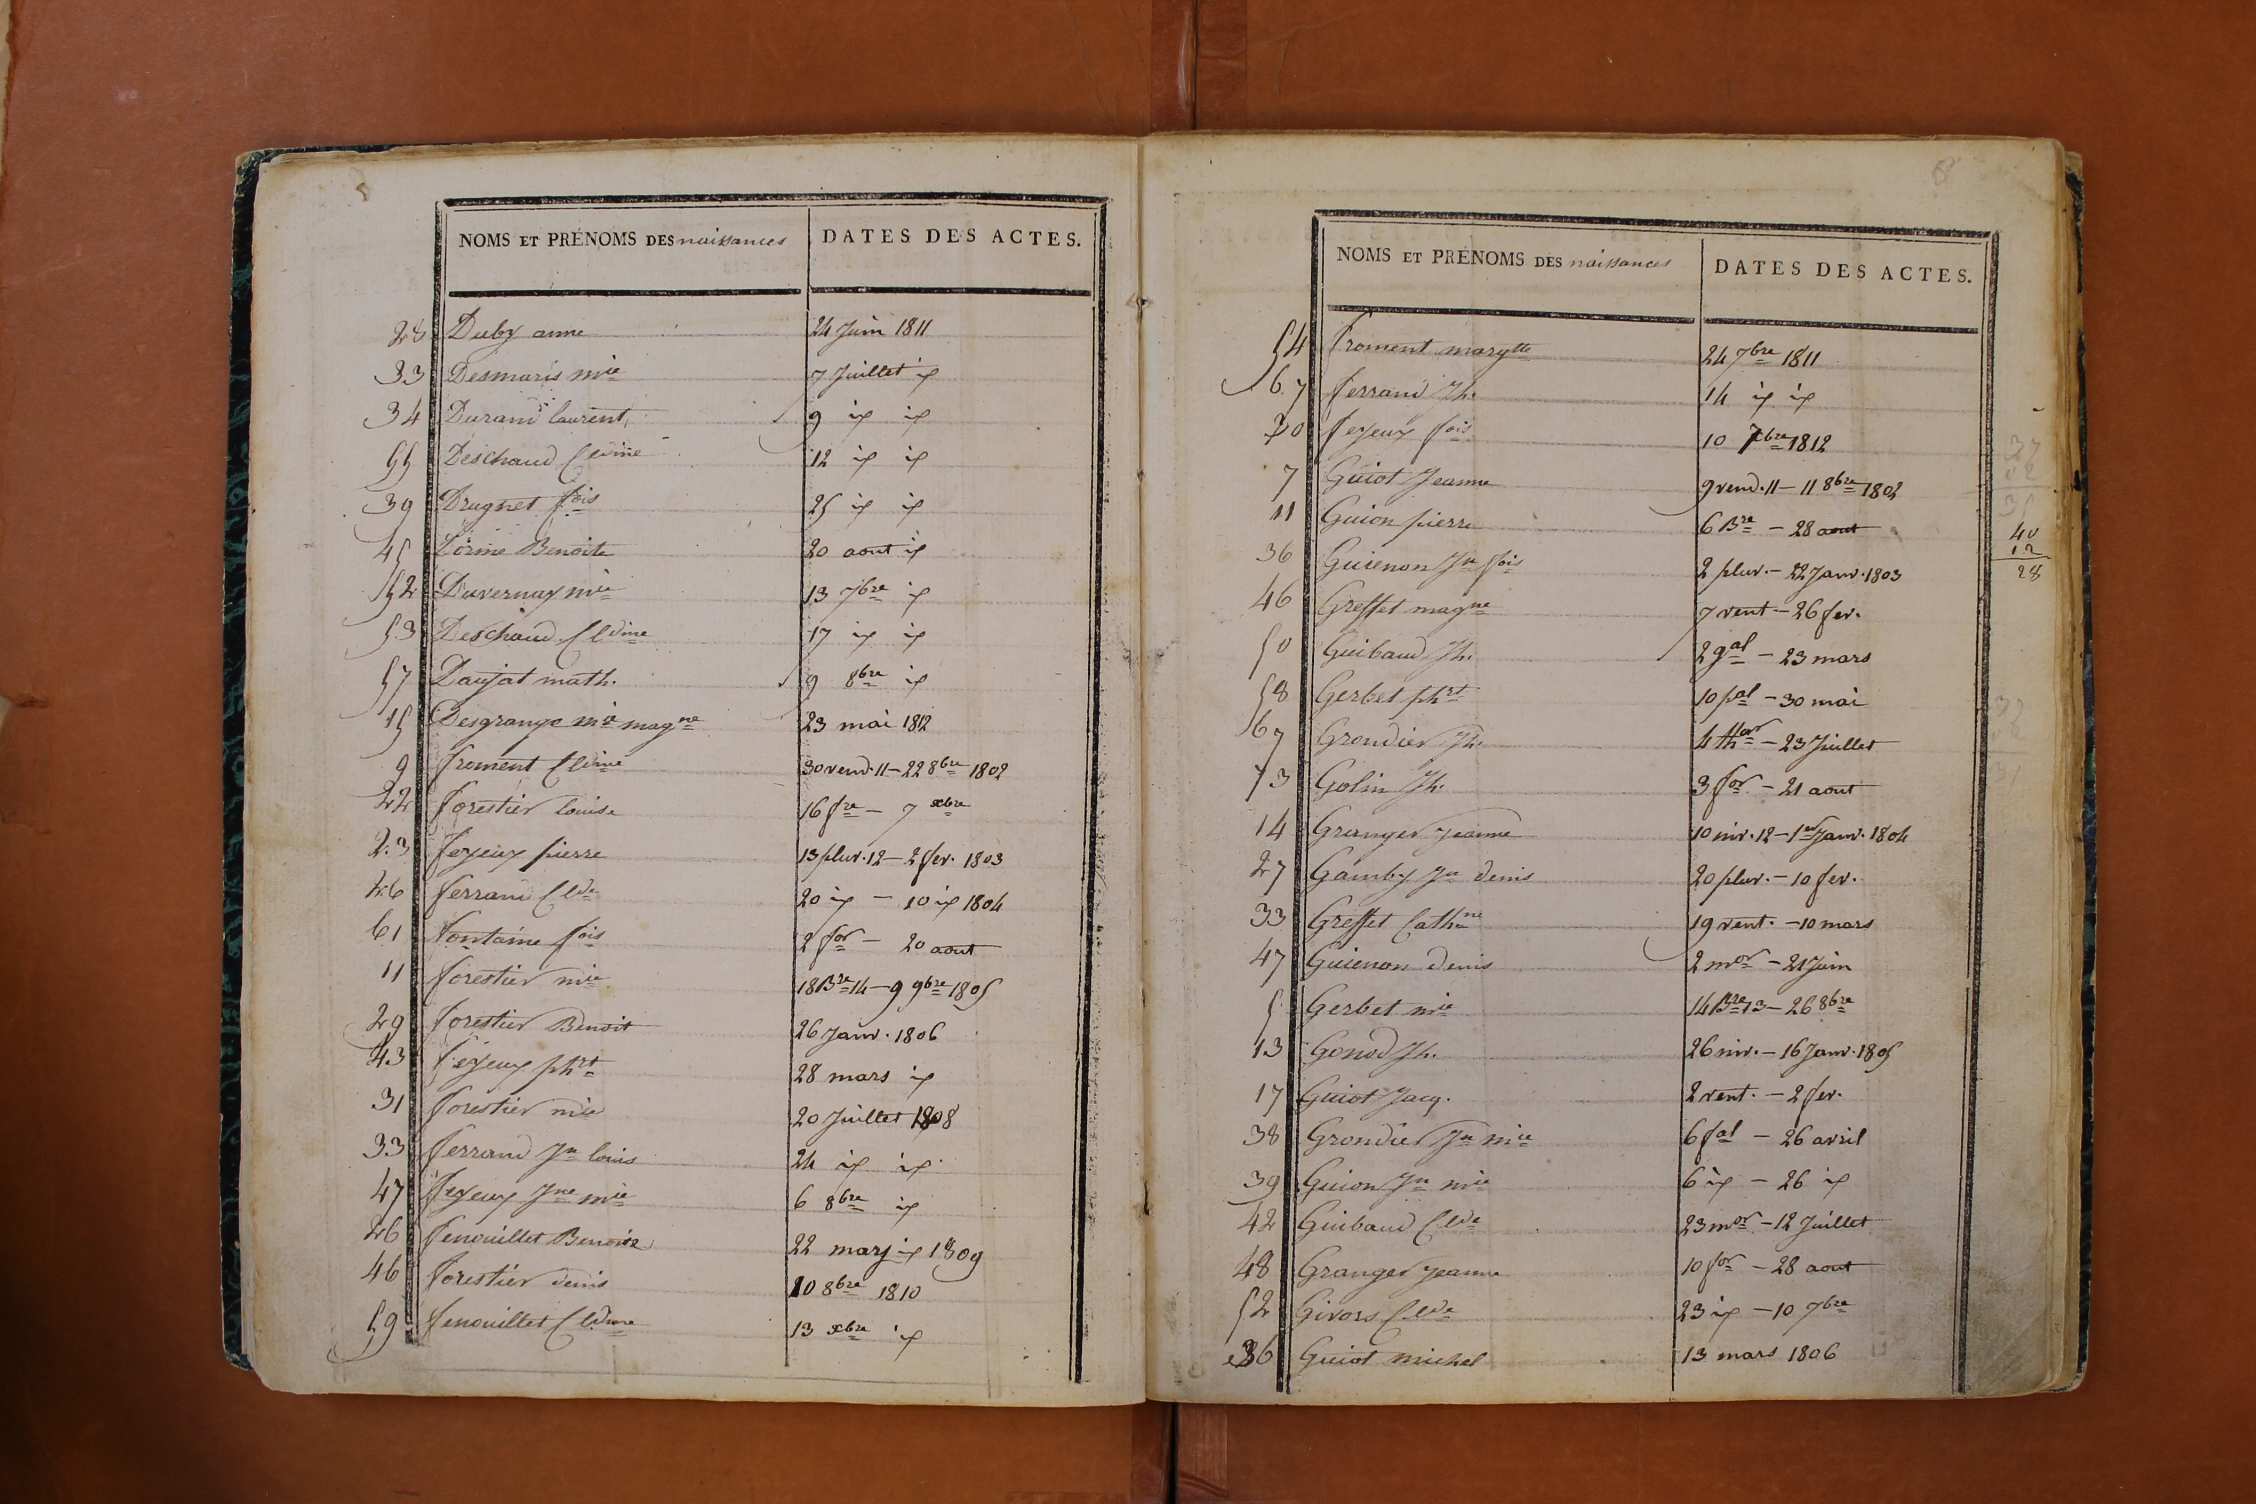 5
NOMS ET PRÉNOMS DES naissances DATES DES ACTES.
28 Duby anne 24 Juin 1811
33 Desmaris mie 7 Juillet id
34 Durand laurent 9 id id
35 Deschaud Cldine 12 id id
39 Drugnet fois 25 id id
45 Benoite 20 aout id
52 Duvernay mie 13 7bre id
53 Deschaud Cldine 17 id id
57 Daujat math. 9 8bre id
15 Desgrange mie magne 23 mai 1812
9 froment Cldine 30 vend. 11 - 22 8bre 1802
22 forestier louise 16 fre - 7 xbre
23 feyeux pierre 13 pluv. 12 - 2 fev. 1803
26 ferrand Clde 20 id - 10 id 1804
61 fontaine fois 2 for - 20 aout
11 forestier mie 18 Bre 14 - 9 9bre 1805
29 forestier Benoit 26 Janv. 1806
43 feyeux phrt 28 mars id
31 forestier mie 20 Juillet 1808
33 ferrand Jn louis 24 id id
47 feyeux Jne mie 6 8bre id
26 fenouillet Benoite 22 mars id 1809
46 forestier denis 10 8bre 1810
59 fenouillet Cldine 13 xbre id
6
NOMS ET PRÉNOMS DES naissances DATES DES ACTES.
54 froment marytte 24 7bre 1811
67 ferrand Jh. 14 id id
70 feyeux fois 10 xbre 1812
7 Guiot Jeanne 9 vend. 11 - 11 8bre 1802
11 Guion pierre 6 Bre - 28 aout
36 Guienon Jn fois 2 pluv. - 22 Janv. 1803
46 Greffet magne 7 vent - 26 fev.
50 Guibaud Jh. 2 gal - 23 mars
58 Gerbet phrt 10 pal - 30 mai
67 Grondier Jh. 4 thor - 23 Juillet
73 Golin Jh. 3 for - 21 aout
14 Granger Jeanne 10 niv. 12 - 1er Janv. 1804
27 Gamby Jn denis 20 pluv. - 10 fev.
33 Greffet Cathne 19 vent. - 10 mars
47 Guienon denis 2 mor - 21 Juin
5 Gerbet mie 14 Bre 13 - 26 8bre
13 Gonod Jh. 26 niv. - 16 Janv. 1805
17 Guiot Jacq. 2 vent. - 2 fev.
38 Grondier Jn mie 6 fal - 26 avril
39 Guion Jn mie 6 id - 26 id
42 Guibaud Clde 23 mor - 12 Juillet
48 Granger Jeanne 10 for - 28 aout
52 Givors Clde 23 id - 10 7bre
36 Guiot michel 13 mars 1806
40
12
28